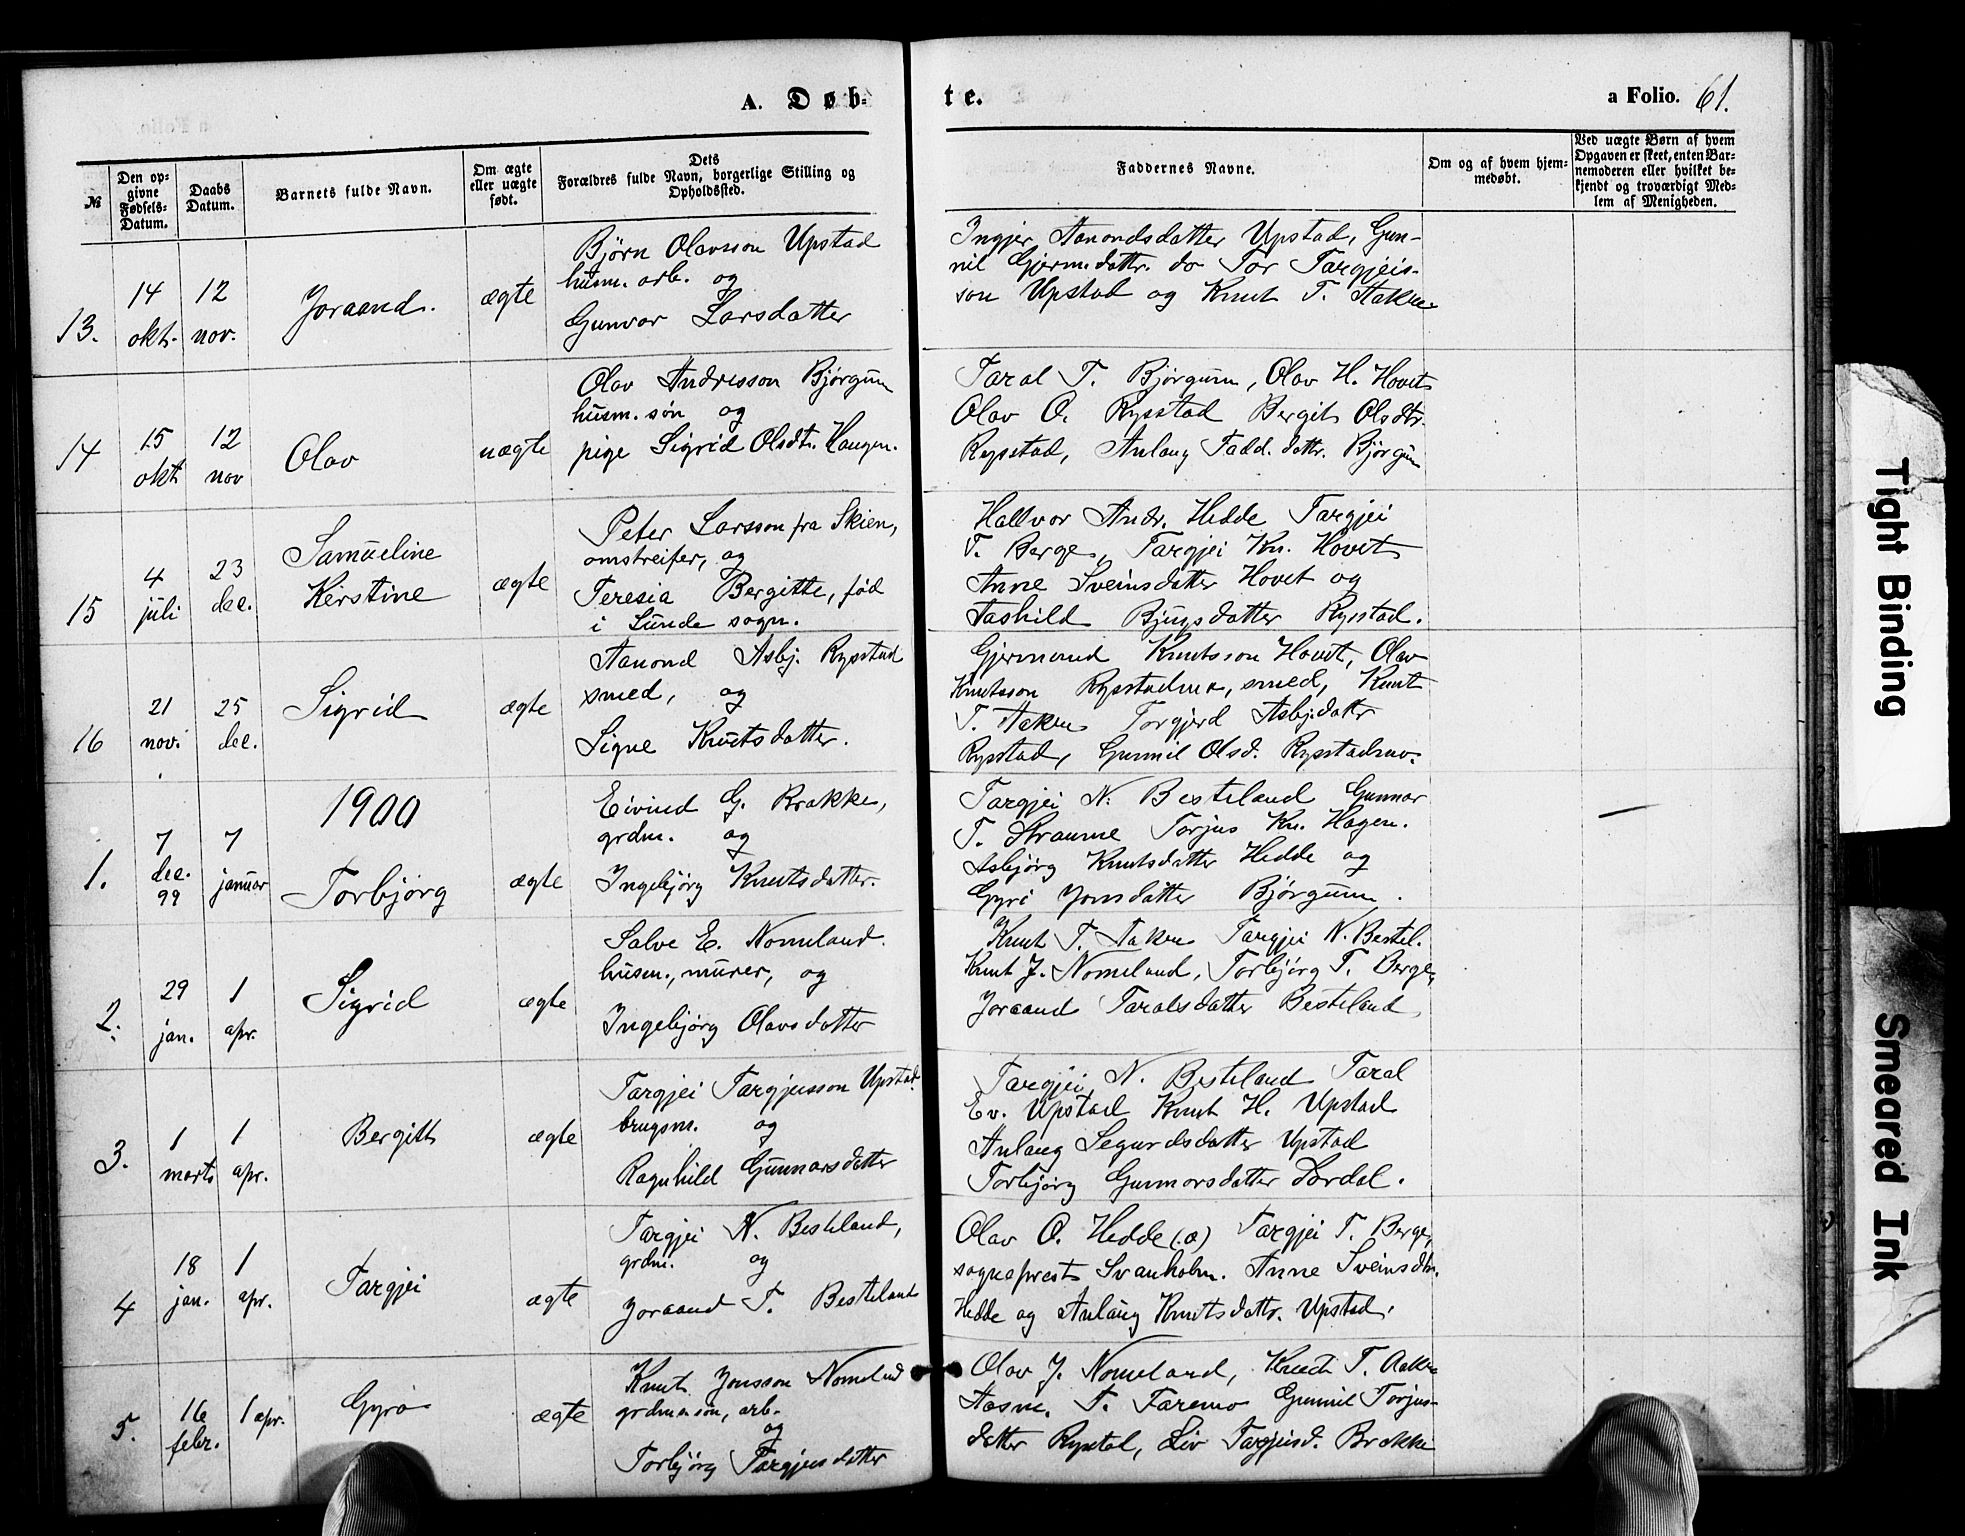 A. Døb-
te.
a Folio. 61.
№
Den op-
givne
Fødsels-
Datum.
Daabs
Datum.
Barnets fulde Navn.
Om ægte
eller uægte
født.
Dets
Forældres fulde Navn, borgerlige Stilling og
Opholdssted.
Faddernes Navne.
Om og af hvem hjem-
medøbt.
Ved uægte Børn af hvem
Opgaven er skeet, enten Bar-
nemoderen eller hvilket be-
kjendt og troværdigt Med-
lem af Menigheden.
13.
14
okt.
12
nov.
Joraand.
ægte
Bjørn Olavsson Upstad
husm. arb. og
Gunvor Larsdatter
Ingjer Aanondsdatter Upstad, Gun-
nil Gjerm.dattr. do Tor Targjeis-
son Upstad og Knut T. Aakre
14
15
okt
12
nov
Olav
uægte
Olav Andresson Bjørgum
husm. søn og
pige Sigrid Olsdtr. Haugen.
Taral T. Bjørgum, Olav H. Hovet
Olav O. Rysstad Bergit Olsdtr.
Rysstad, Anlaug Tadd. dattr. Bjørgum
15
4
juli
23
dec.
Samueline
Kirstine
ægte
Peter Larsson fra Skien,
omstreifer, og
Teresia Bergitte, fød
i Lunde sogn.
Hallvor Andr. Hedde Targjei
T. Berge, Targjei Kn. Hovet
Anne Sveinsdatter Hovet og
Aashild Bjugsdatter Rysstad.
16
21
nov.
25
dec.
Sigrid
ægte
Aanond Asbj. Rysstad
smed, og
Signe Knutsdatter.
Gjermund Knutsson Hovet, Olav
Knutsson Rysstadmo, smed, Knut
T. Aakre Torgjerd Asbj.datter
Rysstad, Gunnil Olsd. Rysstadmo.
1900
1.
7
dec.
99
7
januar
Torbjørg
ægte
Eivind G. Brokke,
grdm. og
Ingebjørg Knutsdatter.
Targjei N. Besteland Gunnar
T. Straume Torjus Kn. Hagen.
Asbjørg Knutsdatter Hedde og
Gyri Jonsdatter Bjørgum.
2.
29
jan.
1
apr.
Sigrid
ægte
Salve E. Nomeland.
husm., murer, og
Ingebjørg Olavsdatter
Knut T. Aakre Targjei N. Bestel.
Knut J. Nomeland, Torbjørg T. Berge,
Joraand Taralsdatter Besteland
3.
1
marts
1
apr.
Bergitt
ægte
Targjei Targjeisson Upstad
brugsm. og
Ragnhild Gunnarsdatter
Targjei N. Besteland Taral
Ev. Upstad Knut H. Upstad
Anlaug Segurdsdatter Upstad
Torbjørg Gunnarsdatter Dordal.
4
18
jan.
1
apr.
Targjei
ægte
Targjei N. Besteland,
grdm. og
Joraand T. Besteland
Olav O. Hedde (.a) Targjei T. Berge,
sogneprest Svanholm. Anne Sveinsdtr.
Hedde og Anlaug Knutsdattr. Upstad.
5.
16
febr.
1 apr.
Gyro
ægte
Knut Jonsson Nomeland
grdmanson, arb.
og
Torbjørg Targjeisdatter
Olav J. Nomeland, Knut T. Aakre
Aasm. T. Faremo Gunnil Torjus-
datter Rystad, Liv Targjeisd. Brokke
Tight Binding
Smeared Ink